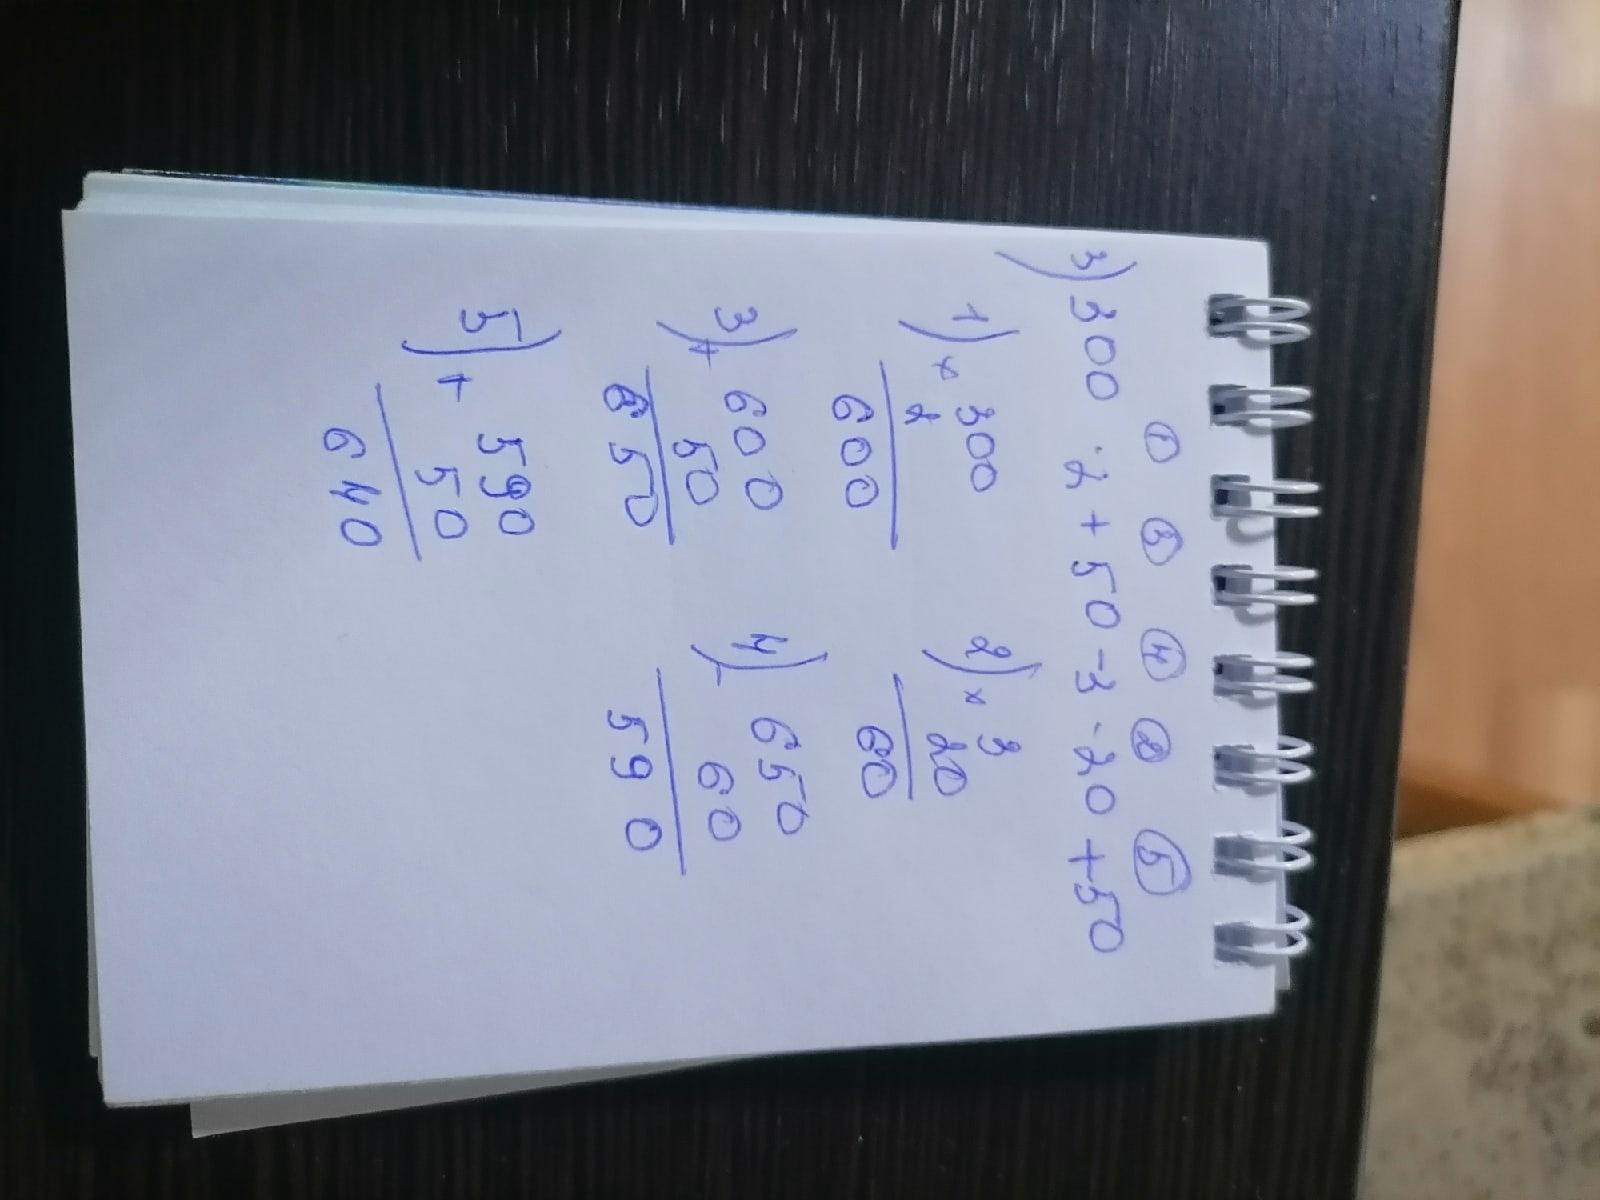 ① ③ ④ ② ⑤
3) 300 · 2 + 50 - 3 · 20 + 50
1) × 300
2
600
2) × 3
20
60
3) + 600
50
650
4) - 650
60
590
5) + 590
50
640